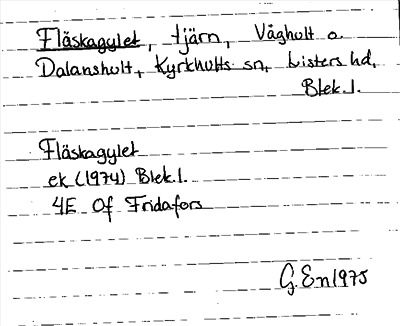 Fläskagylet, tjärn, Våghult o.
Dalanshult, Kyrkhults sn, Listers hd,
Blek.l.
Fläskagylet
ek (1974) Blek.l.
4E Of Fridafors
G. En 1975